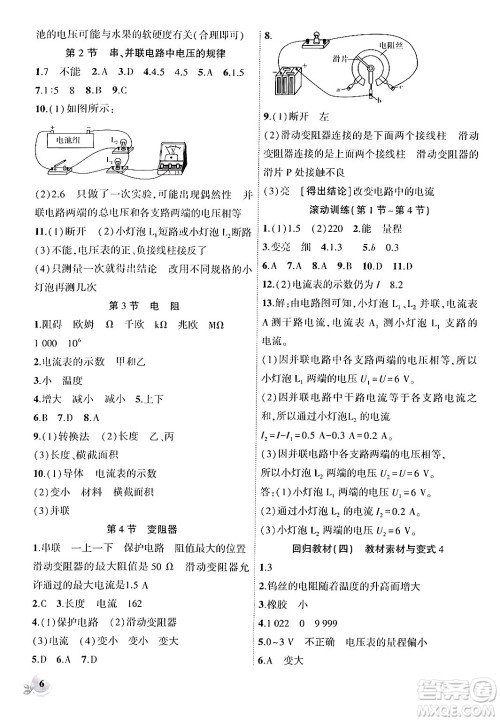 池的电压可能与水果的软硬度有关(合理即可)
第2节 串、并联电路中电压的规律
1.7 不能 2.A 3.D 4.2 5.C 6.1.5
7.1:5 8.B 9.C
10.(1)如图所示:
电池组
L₁
L₂
(2)2.6 只做了一次实验,可能出现偶然性 并
联电路两端的总电压与各支路两端的电压相等
(3)不能,电压表正、负接线柱接反了
11.(1)断开 (2)小灯泡L₂短路(或小灯泡L₁断路)
(3)不能,因为小灯泡L₁、L₂两端的电压可能不等
(4)只测量一次就得出结论 改用不同规格的小灯
泡再测几次
第3节 电 阻
1.阻碍 欧姆 Ω 1 V 1 A
1 000 10⁶
2.电流表的示数 甲和乙
3.小 温度
4.增大 减小 5.减小 减小
6.B 7.D 8.D
9.(1)转换法 (2)长度 甲、乙
(3)长度、横截面积
10.(1)导体 电流表的示数
(2)变小 材料 横截面积
(3)并联
第4节 变阻器
1.串联 一上一下 保护电路 阻值最大的位置
滑动变阻器的最大阻值是50 Ω 滑动变阻器允
许通过的最大电流是1.5 A
2.C 3.C 4.大于 162
5.D 6.(1)保护电路 (2)滑动变阻器
(3)电流 (4)变小 变大
7.D
8.
滑片
电阻丝
9.(1)断开 左
(2)滑动变阻器连接的是下面两个接线柱 滑动变
阻器连接的是上面两个接线柱 滑动变阻器的
滑片P处接触不良
(3)亮 [得出结论]改变电路中的电流
滚动训练(第1节~第4节)
1.(1)1.5 (2)220 2.能 量程
3.变亮 细 4.> > 5.b 6.0.3
7.A 8.A 9.D 10.D 11.D
12.(1)电流表的示数仍为I 8.2
13.解:由电路图可知,小灯泡L₁、L₂并联,电流表
A测干路的电流,电流表A₁测小灯泡L₁支路的电
流。
(1)因并联电路中各支路两端的电压相等,所以
小灯泡L₁两端的电压U₁=U=6 V。
(2)因并联电路中干路电流等于各支路电流之
和,所以通过小灯泡L₂的电流
I₂=I-I₁=0.5 A-0.3 A=0.2 A。
(3)因并联电路中各支路两端的电压相等,所以
小灯泡L₂两端的电压U₂=U=6 V。
答:(1)小灯泡L₁两端的电压为6 V。
(2)通过小灯泡L₂的电流为0.2 A。
(3)小灯泡L₂两端的电压为6 V。
回归教材(四) 教材素材与变式4
1.3
2.钨丝的电阻随温度的升高而增大
3.橡胶 小
4.1 022 0 9 999
5.0~3 V 不正确 电压表的量程偏小
6.A 变大
6